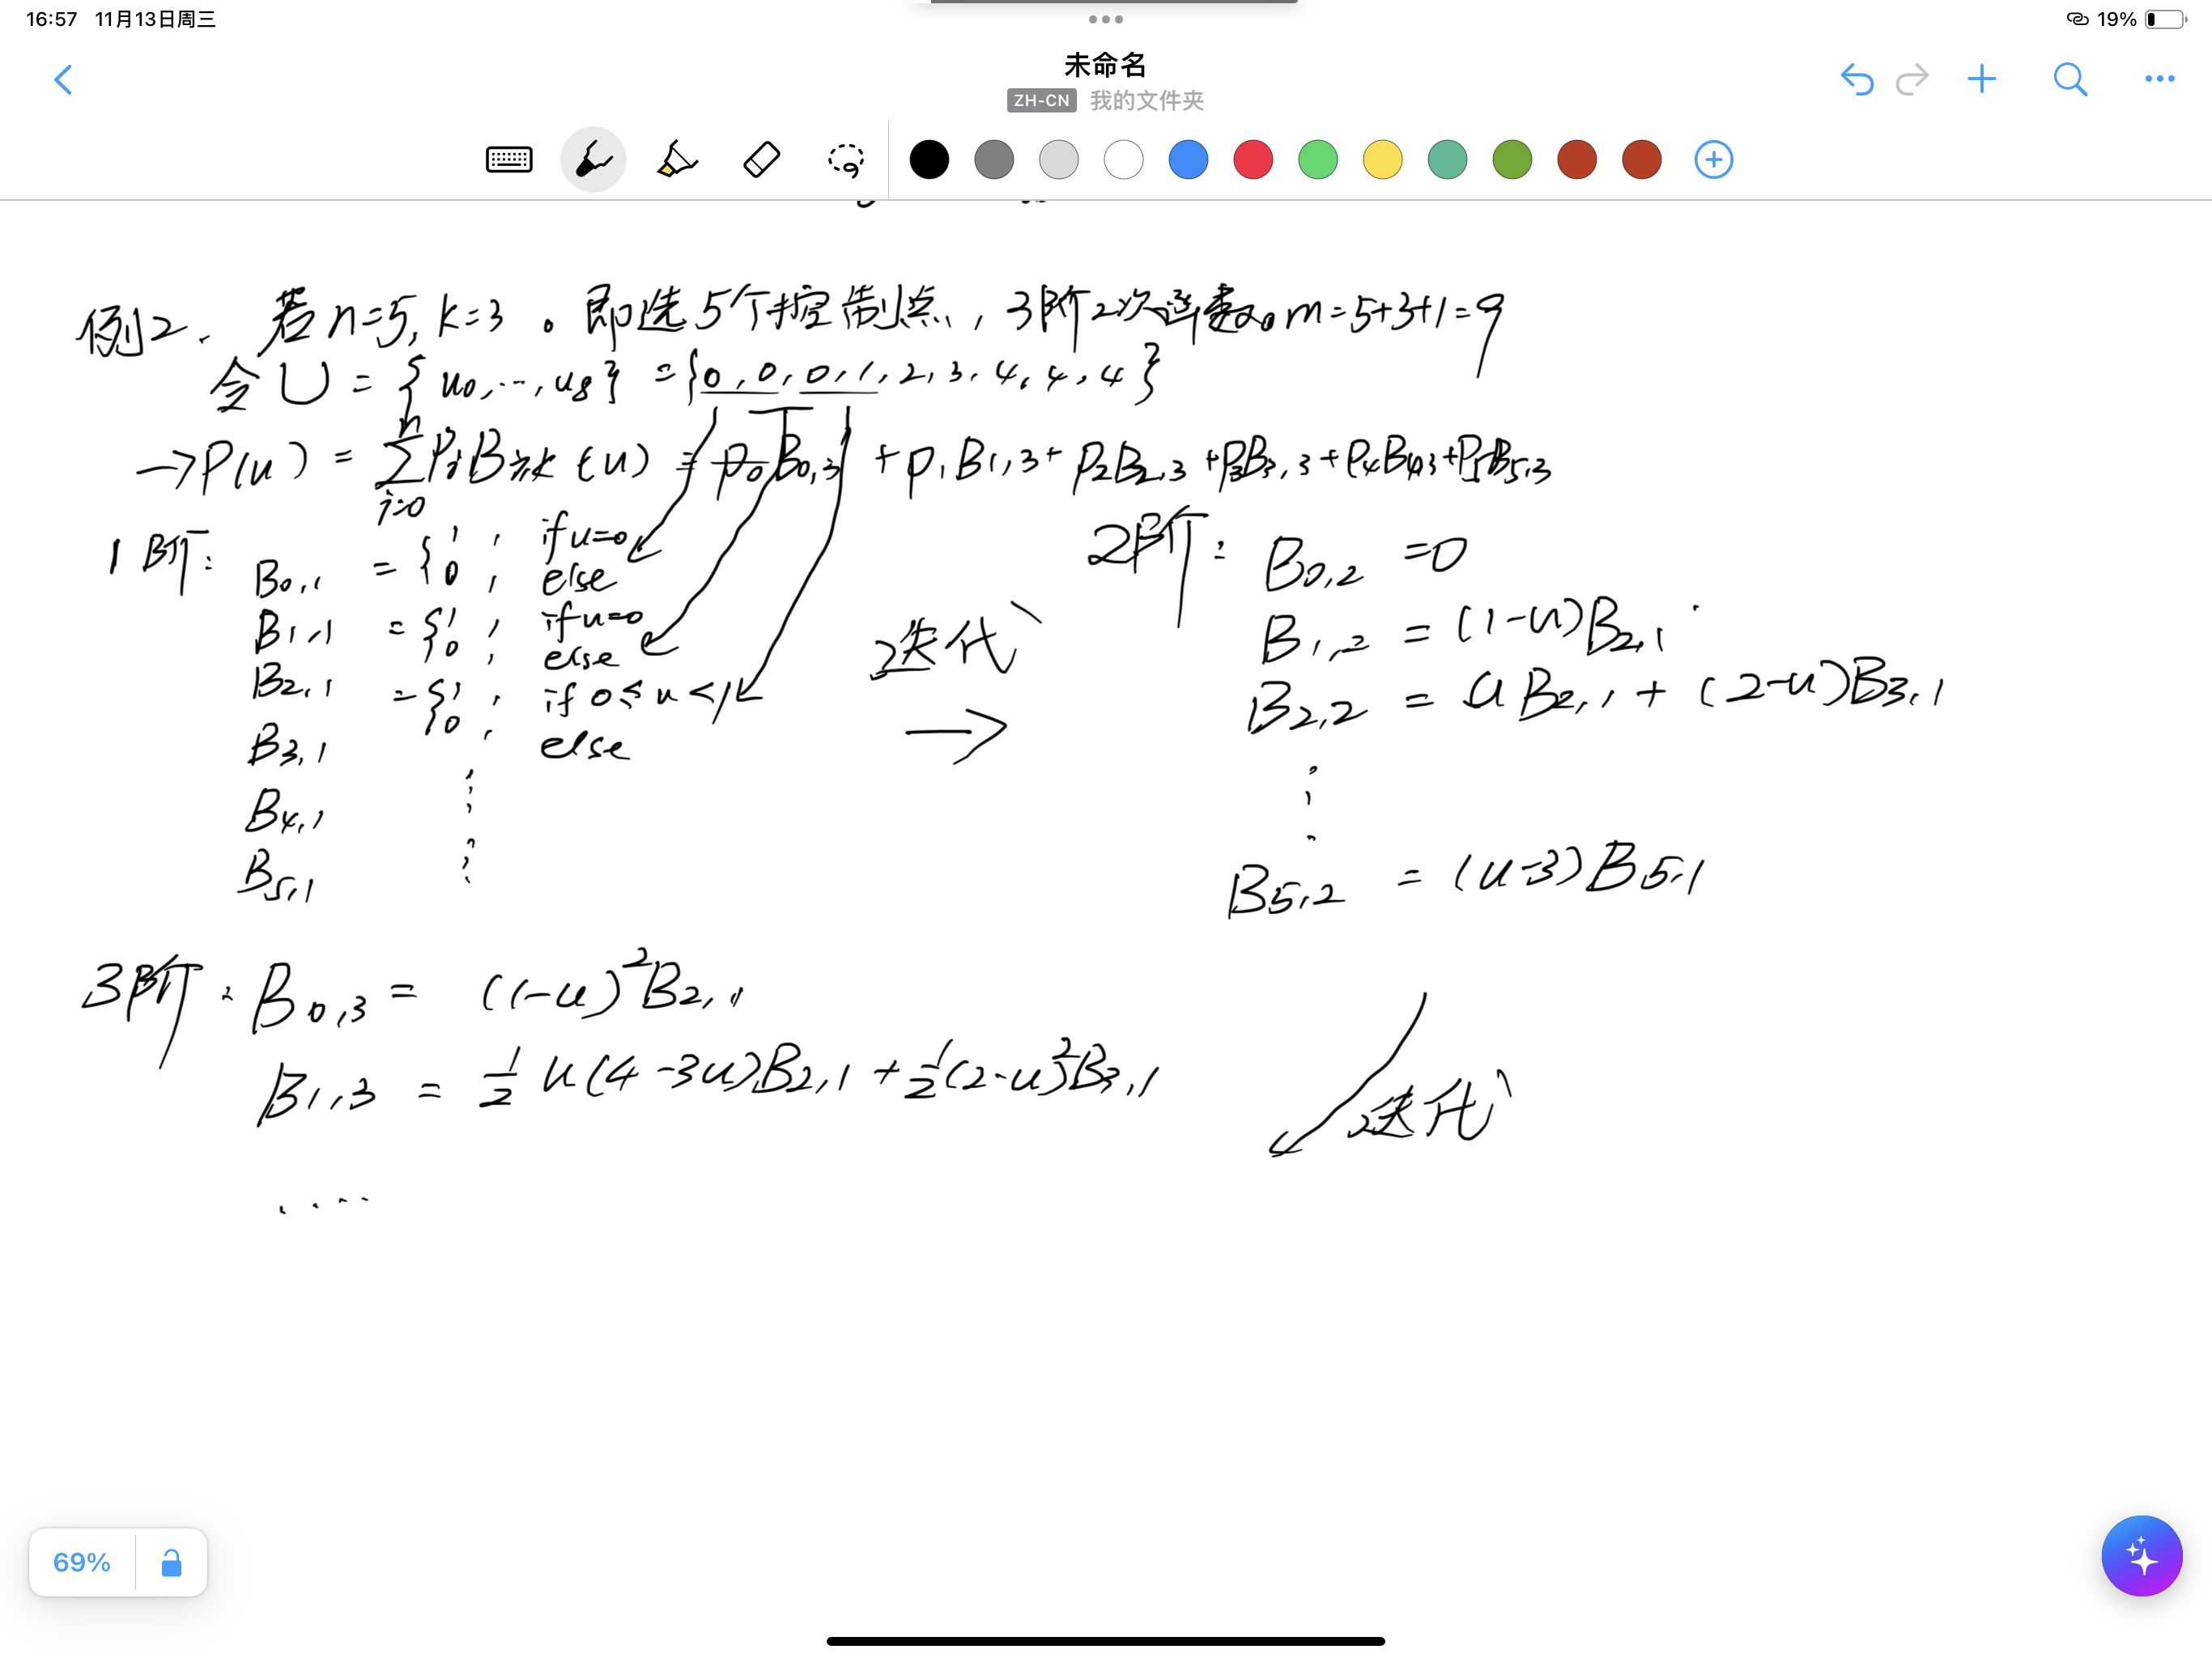 16:57 11月13日周三
19%
未命名
ZH-CN 我的文件夹
例2、若n=5,k=3。即选5个控制点,3阶2次函数。m=5+3+1=9
令U={u0,…,u8}={0,0,0,1,2,3,4,4,4}
→P(u)=∑_{i=0}^{n}PiBi,k(u)=p0B0,3+p1B1,3+P2B2,3+P3B3,3+P4B4,3+P5B5,3
1阶:
B0,1={1, if u=0
0, else
B1,1={1, if u=0
0, else
B2,1={1, if 0≤u<1
0, else
B3,1
B4,1
B5,1
迭代
→
2阶:
B0,2=0
B1,2=(1-u)B2,1
B2,2=uB2,1+(2-u)B3,1
B5,2=(u-3)B5,1
3阶:B0,3=(1-u)²B2,1
B1,3=½u(4-3u)B2,1+½(2-u)²B3,1
迭代
....
69%